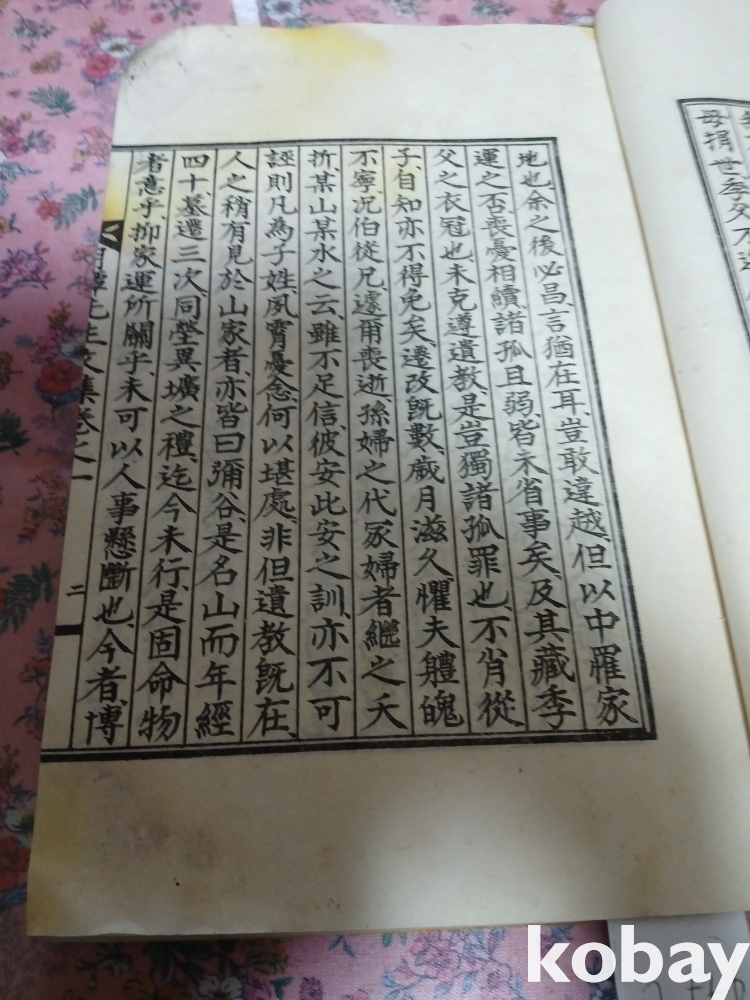 母捐世季父不
地也余之後必昌言猶在耳豈敢違越但以中罹家
運之否喪憂相續諸孤且弱皆未省事矣及其藏季
父之衣冠也未克遵遺教是豈獨諸孤罪也不肖從
子自知亦不得免矣遷改旣數歲月滋久懼夫軆魄
不寧况伯從兄遽爾喪逝孫婦之代冢婦者繼之夭
折某山某水之云雖不足信彼安此安之訓亦不可
誣則凡為子姓夙霄憂念何以堪處非但遺教旣在
人之稍有見於山家者亦皆曰彌谷是名山而年經
四十墓遷三次同塋異壙之禮迄今未行是固命物
者意乎抑家運所關乎未可以人事懸斷也今者博
先生文集卷之一
二
kobay